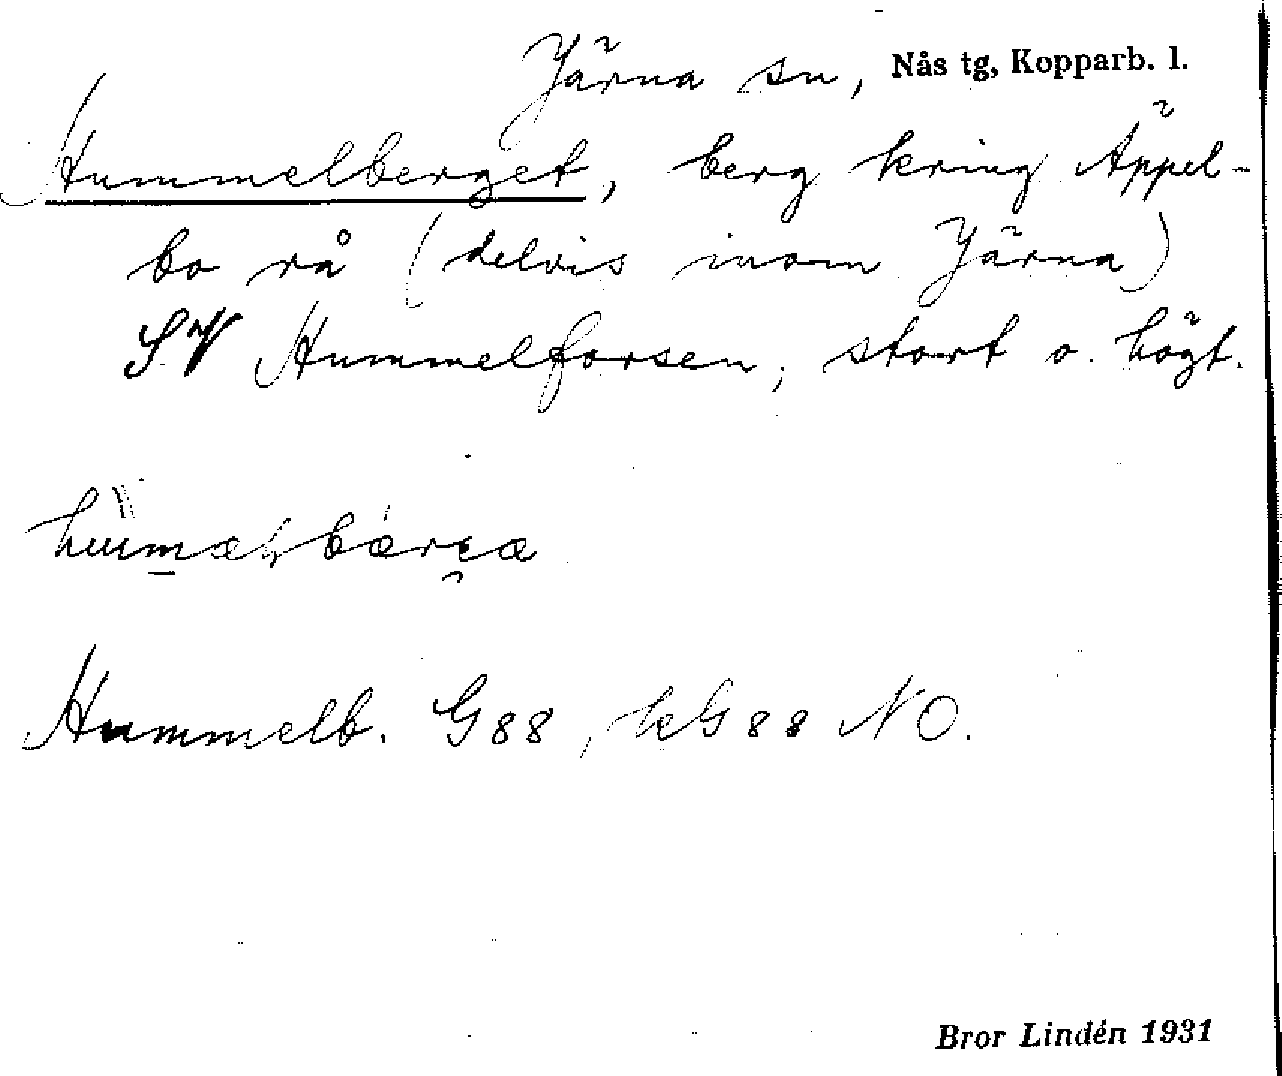 Järna sn, Nås tg, Kopparb. l.
Hummelberget, berg kring Äppel-
bo rå (delvis inom Järna)
SV Hummelforsen, stort o. högt.
Hummelb. G88, kG88 NO.
Bror Lindén 1931